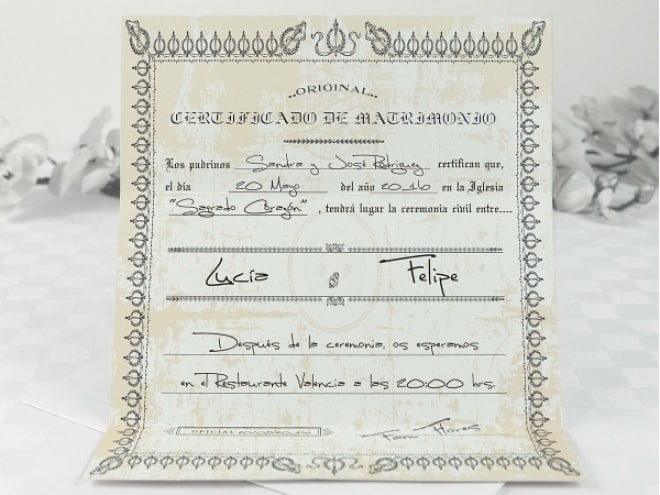 ORIGINAL
CERTIFICADO DE MATRIMONIO
Los padrinos Sandra y José Rodriguez certifican que,
el día 20 Mayo del año 2016 en la Iglesia
"Sagrado Corazón", tendrá lugar la ceremonia civil entre....
Lucía & Felipe
Después de la ceremonia, os esperamos
en el Restaurante Valencia a las 20:00 hrs.
OFICIAL
Fam Flores